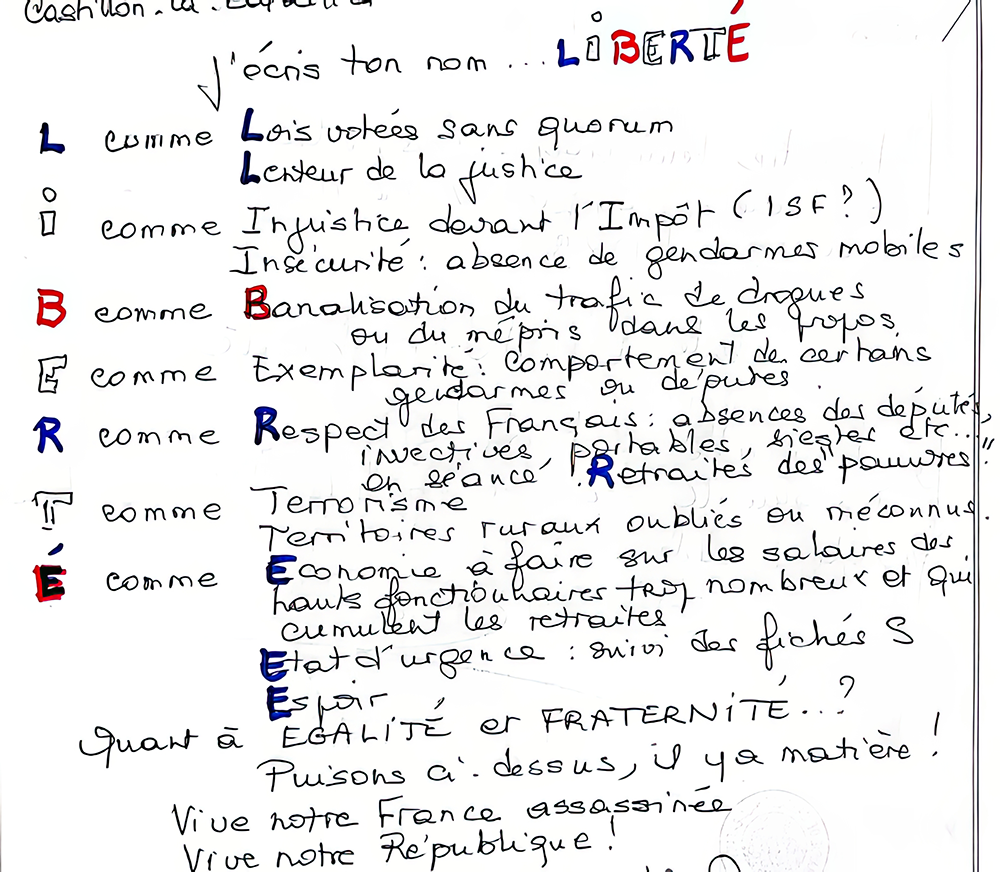 Castillon-la-
J'écris ton nom ... LiBERTÉ
L comme Lois votées sans quorum
Lenteur de la justice
i comme Injustice devant l'Impôt (ISF ?)
Insécurité : absence de gendarmes mobiles
B comme Banalisation du trafic de drogues
ou du mépris dans les propos.
E comme Exemplarité : Comportement de certains
gendarmes ou députés.
R comme Respect des Français : absences des députés,
invectives, portables, siestes etc...
en séance. Retraités des "pauvres".
T comme Terrorisme
Territoires ruraux oubliés ou méconnus.
É comme Economie à faire sur les salaires des
hauts fonctionnaires trop nombreux et qui
cumulent les retraites
Etat d'urgence : suivi des fichés S
Espoir
Quant à EGALiTÉ et FRATERNiTÉ...?
Puisons ci-dessus, il y a matière !
Vive notre France assassinée
Vive notre République !